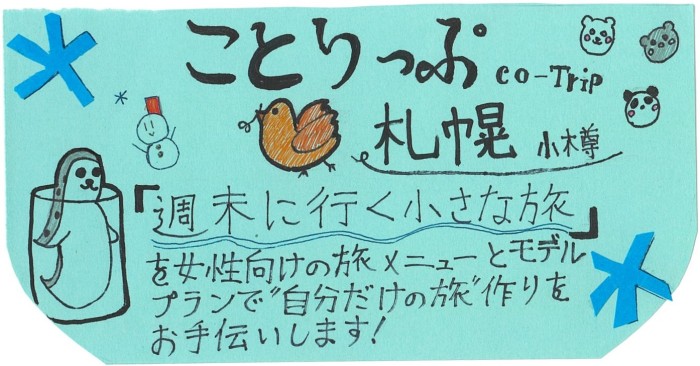 ことりっぷ co-Trip
札幌 小樽
「週末に行く小さな旅」
を女性向けの旅メニューとモデル
プランで"自分だけの旅"作りを
お手伝いします!